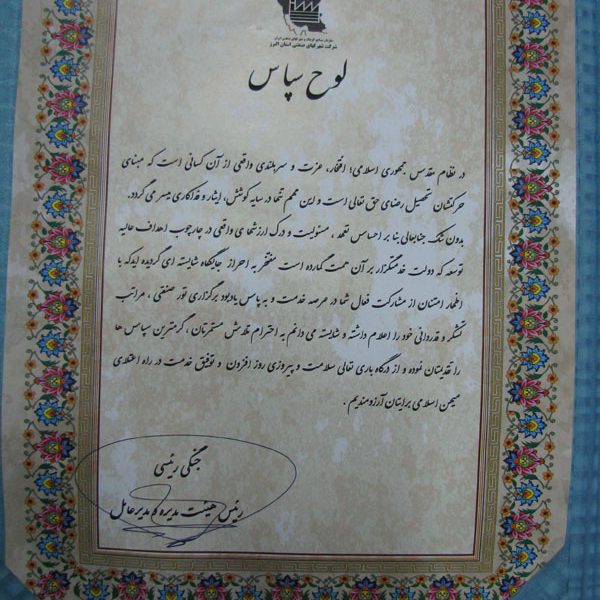 سازمان صنایع کوچک و شهرکهای صنعتی ایران
شرکت شهرکهای صنعتی استان البرز
لوح سپاس
در نظام مقدس جمهوری اسلامی؛ افتخار، عزت و سربلندی واقعی از آن کسانی است که مبنای
حرکتشان تحصیل رضای حق تعالی است و این مهم تنها در سایه کوشش، ایثار و فداکاری میسر می گردد.
بدون شک جنابعالی بنا بر احساس تعهد، مسئولیت و درک ارزشهای واقعی در چارچوب اهداف عالیه
توسعه که دولت خدمتگزار بر آن همت گمارده است مفتخر به احراز جایگاه شایسته ای گردیده اید که با
اظهار امتنان از مشارکت فعال شما در عرصه خدمت و به پاس یادبود برگزاری تور صنعتی، مراتب
تشکر و قدردانی خود را اعلام داشته و شایسته می دانم به احترام تلاش مستمرتان، گرمترین سپاس ها
را تقدیمتان نموده و از درگاه باری تعالی سلامت و پیروزی روز افزون و توفیق خدمت در راه اعتلای
میهن اسلامی برایتان آرزومندیم.
جنگی رئیسی
رئیس هیئت مدیره و مدیرعامل